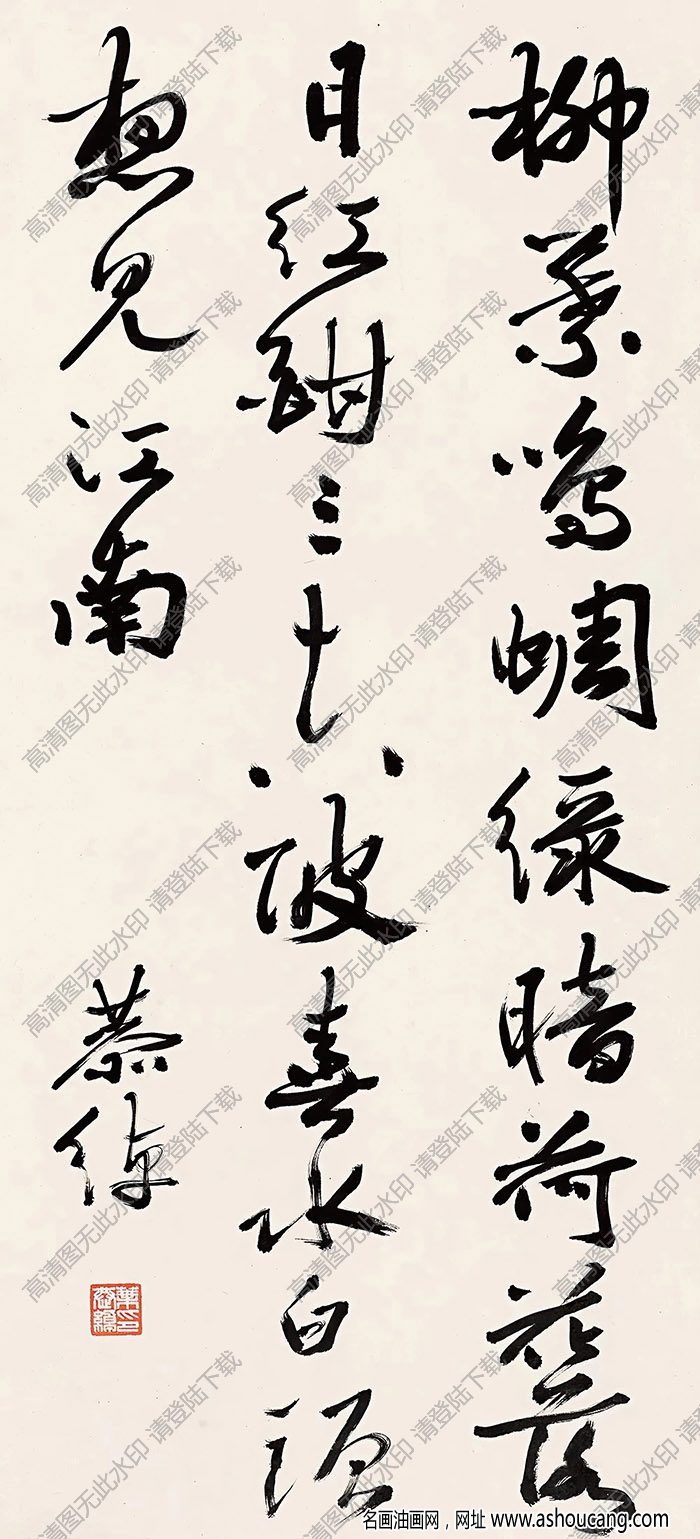 柳葉鳴蜩綠暗荷花落
日紅酣三十六陂春水白頭
想見江南
恭綽
葉恭綽印
高清图无此水印 请登陆下载
名画油画网，网址 www.ashoucang.com